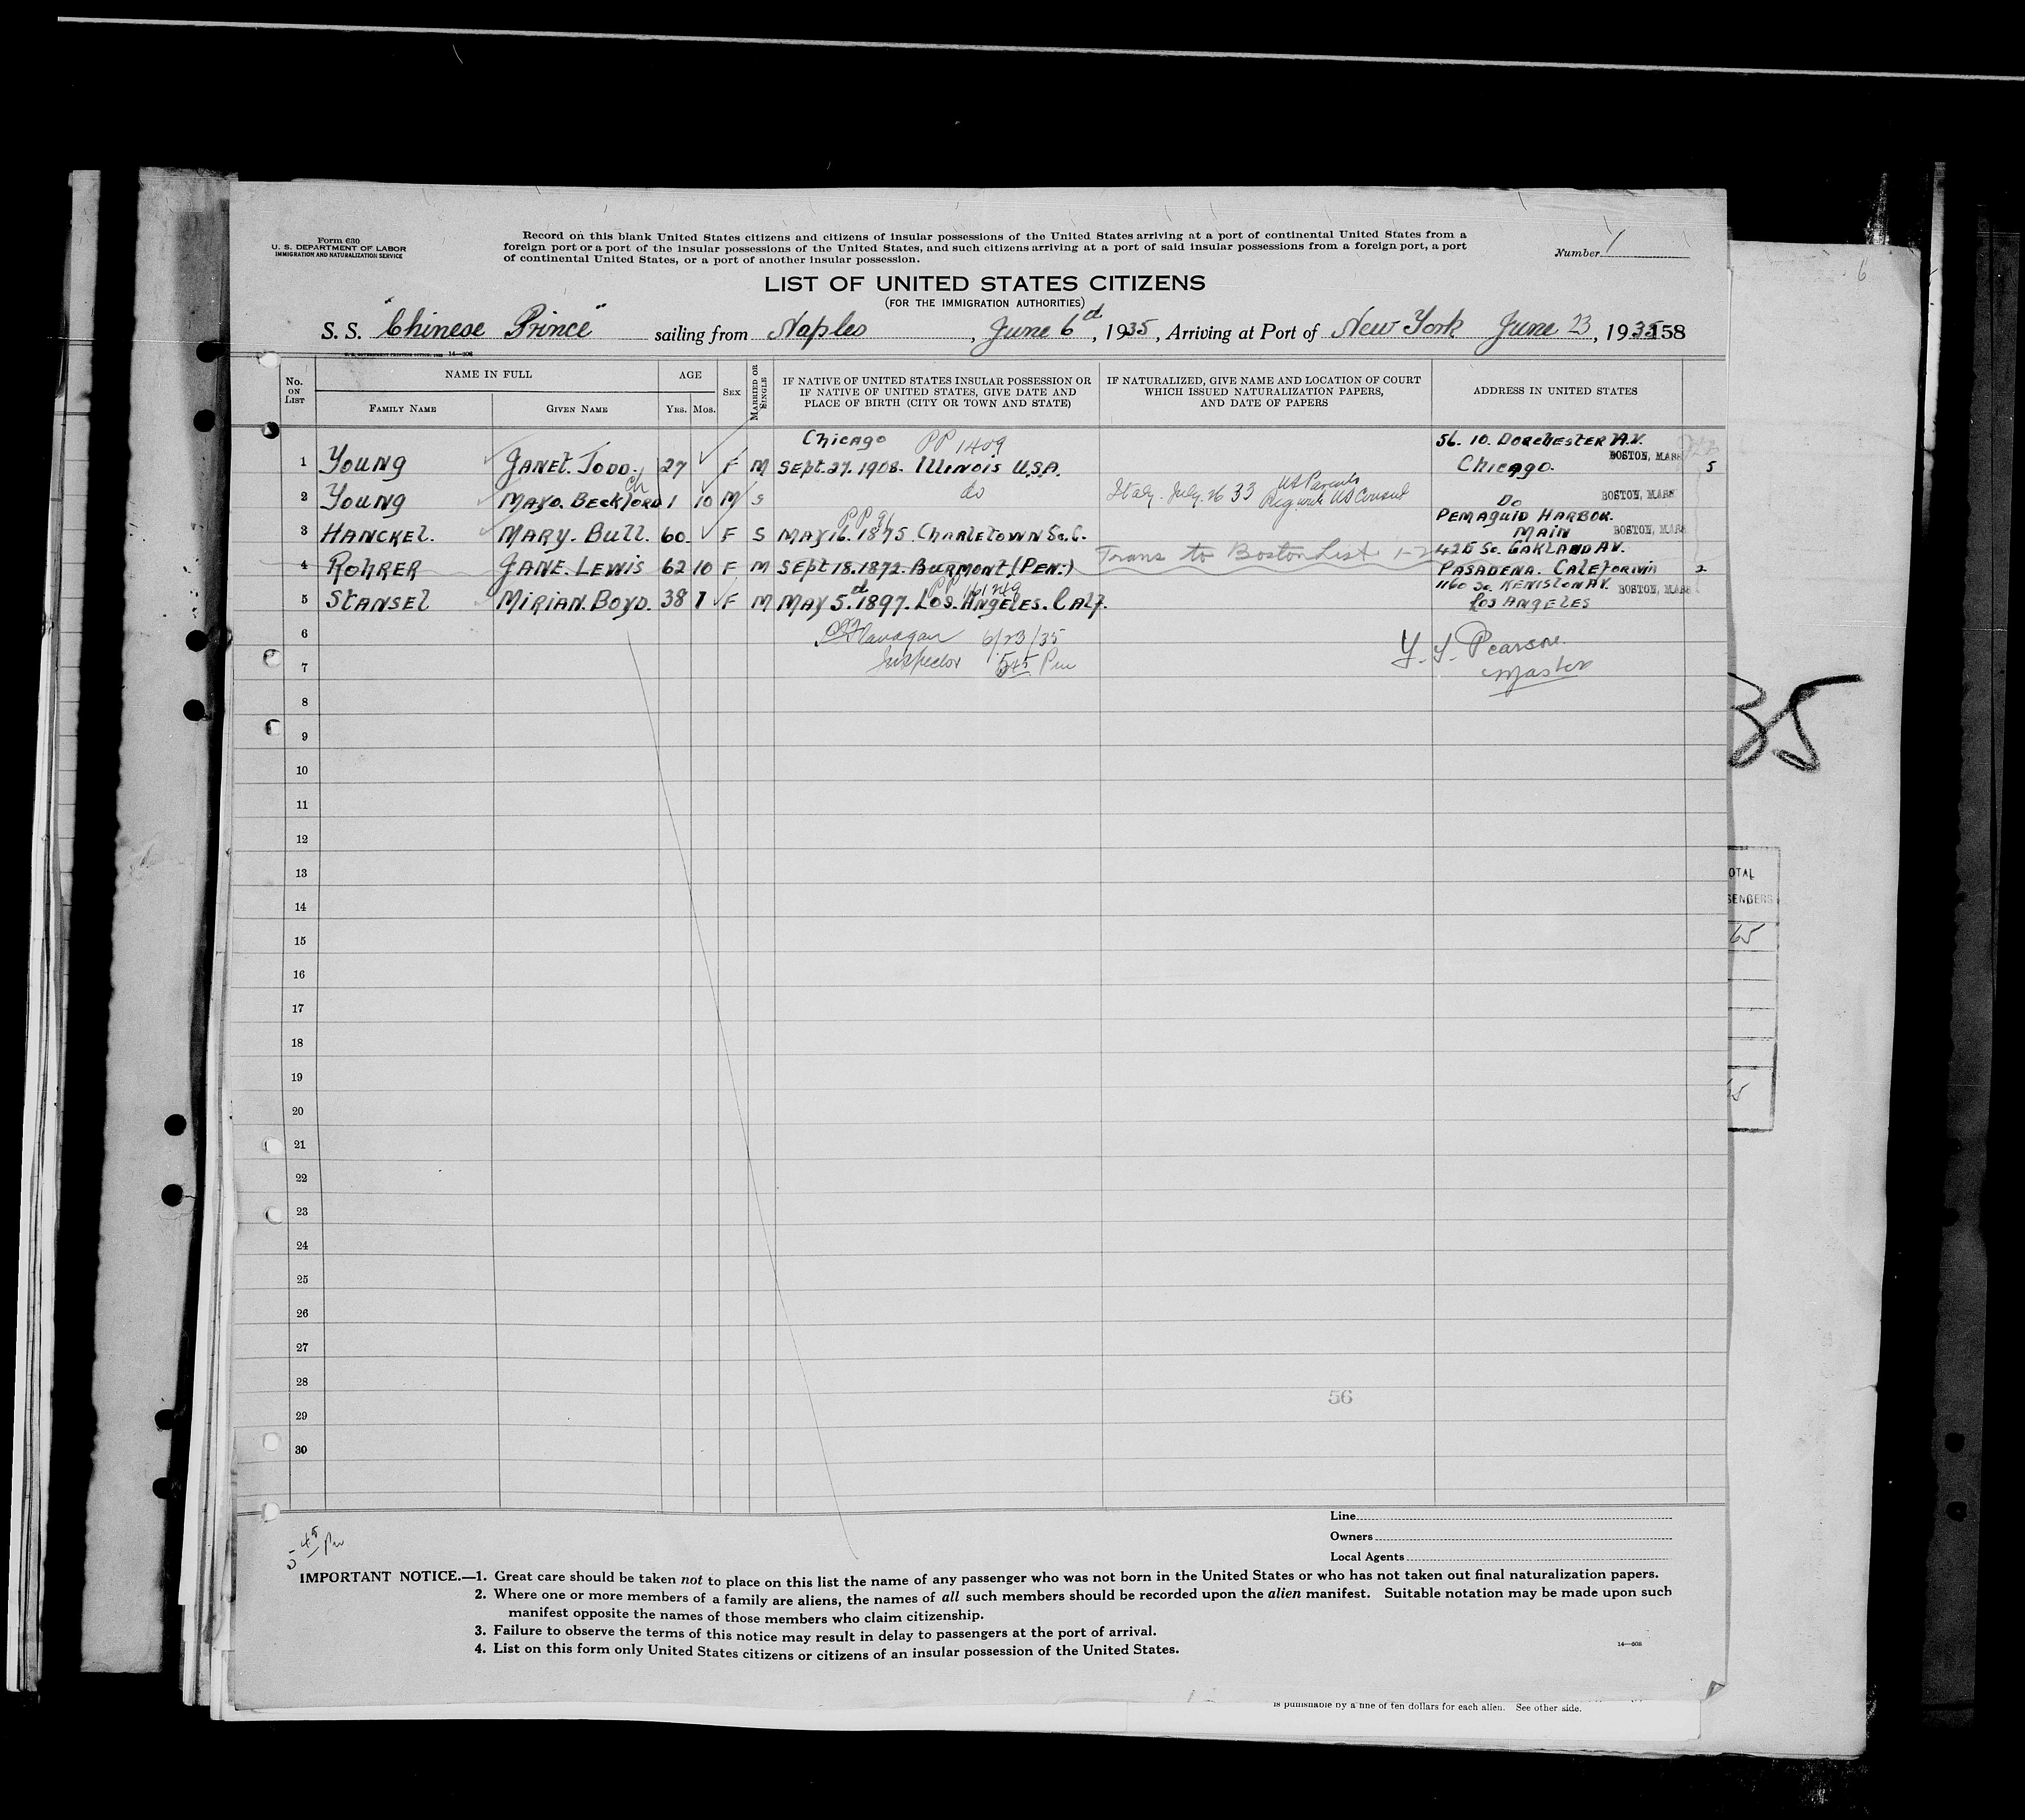 Form 630
U. S. DEPARTMENT OF LABOR
IMMIGRATION AND NATURALIZATION SERVICE
Record on this blank United States citizens and citizens of insular possessions of the United States arriving at a port of continental United States from a
foreign port or a port of the insular possessions of the United States, and such citizens arriving at a port of said insular possessions from a foreign port, a port
of continental United States, or a port of another insular possession.
Number 1
6
LIST OF UNITED STATES CITIZENS
(FOR THE IMMIGRATION AUTHORITIES)
S. S. "Chinese Prince" sailing from Naples, June 6d, 1935, Arriving at Port of New York June 23, 1935 158
No. ON LIST
NAME IN FULL
FAMILY NAME
GIVEN NAME
AGE
YRS. MOS.
SEX
MARRIED OR SINGLE
IF NATIVE OF UNITED STATES INSULAR POSSESSION OR
IF NATIVE OF UNITED STATES, GIVE DATE AND
PLACE OF BIRTH (CITY OR TOWN AND STATE)
IF NATURALIZED, GIVE NAME AND LOCATION OF COURT
WHICH ISSUED NATURALIZATION PAPERS,
AND DATE OF PAPERS
ADDRESS IN UNITED STATES
Chicago PP 1409 56. 10. Dorchester AV.
1 Young Janet. Todd. 27 F M Sept. 27. 1908. Illinois U.S.A. Chicago. BOSTON, MASS 5
2 Young Mayo. Beckford 1 10 M S do Italy. July. 26 33 US Parents Reg. with US Consul Do BOSTON, MASS
Pemaquid Harbor.
3 Hanckel. Mary. Bull. 60 F S May 16. 1875. Charletown So. C. Main BOSTON, MASS
Trans to Boston List 1-2 425 So. Oakland AV.
4 Rohrer Jane. Lewis 62 10 F M Sept 18. 1872. Burmont. (Pen.) Pasadena. Caleforina 2
1160 So. Keniston AV. BOSTON, MASS
5 Stansel Mirian. Boyd. 38 1 F M May 5d. 1897. Los. Angeles. Calf. Los Angeles
6 Flanagan 6/23/35 Pearson
7 Inspector 545 Pm Master
8
35
9
10
11
12
13
OTAL
SENGERS
14
15
65
16
17
18
19
20
21
22
23
24
25
26
27
28
56
29
30
Line
Owners
Local Agents
5 45 Pm
IMPORTANT NOTICE.—1. Great care should be taken not to place on this list the name of any passenger who was not born in the United States or who has not taken out final naturalization papers.
2. Where one or more members of a family are aliens, the names of all such members should be recorded upon the alien manifest. Suitable notation may be made upon such
manifest opposite the names of those members who claim citizenship.
3. Failure to observe the terms of this notice may result in delay to passengers at the port of arrival.
4. List on this form only United States citizens or citizens of an insular possession of the United States.
is punishable by a fine of ten dollars for each alien. See other side.